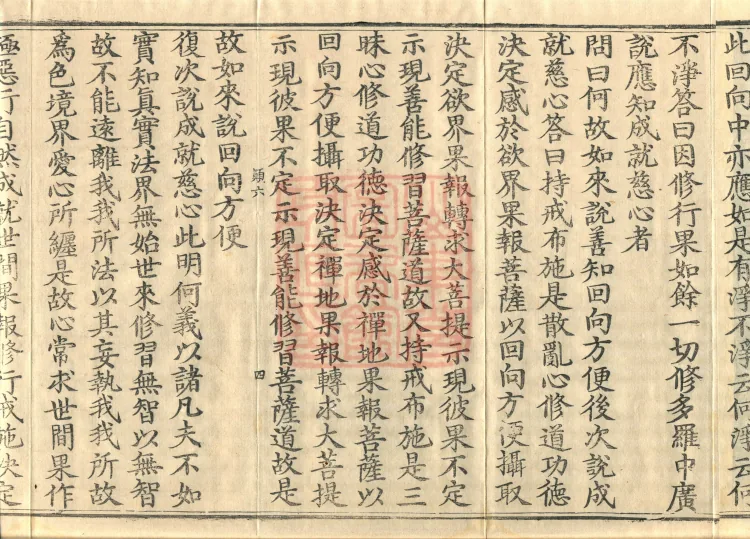 此回向中亦應如是有淨不淨云何淨云何
不淨答曰因修行果如餘一切修多羅中廣
說應知成就慈心者
問曰何故如來說善知回向方便後次說成
就慈心答曰持戒布施是散亂心修道功德
決定感於欲界果報菩薩以回向方便攝取
決定欲界果報轉求大菩提示現彼果不定
示現善能修習菩薩道故又持戒布施是三
昧心修道功德決定感於禪地果報菩薩以
回向方便攝取決定禪地果報轉求大菩提
示現彼果不定示現善能修習菩薩道故是
穎六
四
故如來說回向方便
復次說成就慈心此明何義以諸凡夫不如
實知真實法界無始世來修習無智以無智
故不能遠離我我所法以其妄執我我所故
為色境界愛心所纏是故心常求世間果作
極惡行自然成就世間果報修行戒施決定